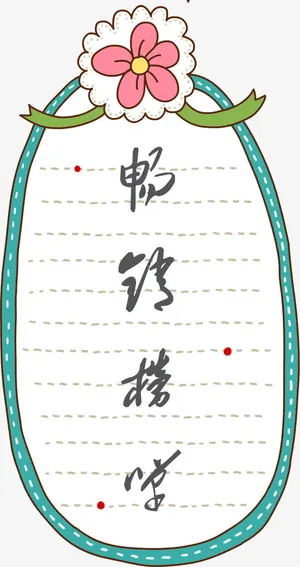 畅
销
榜
单